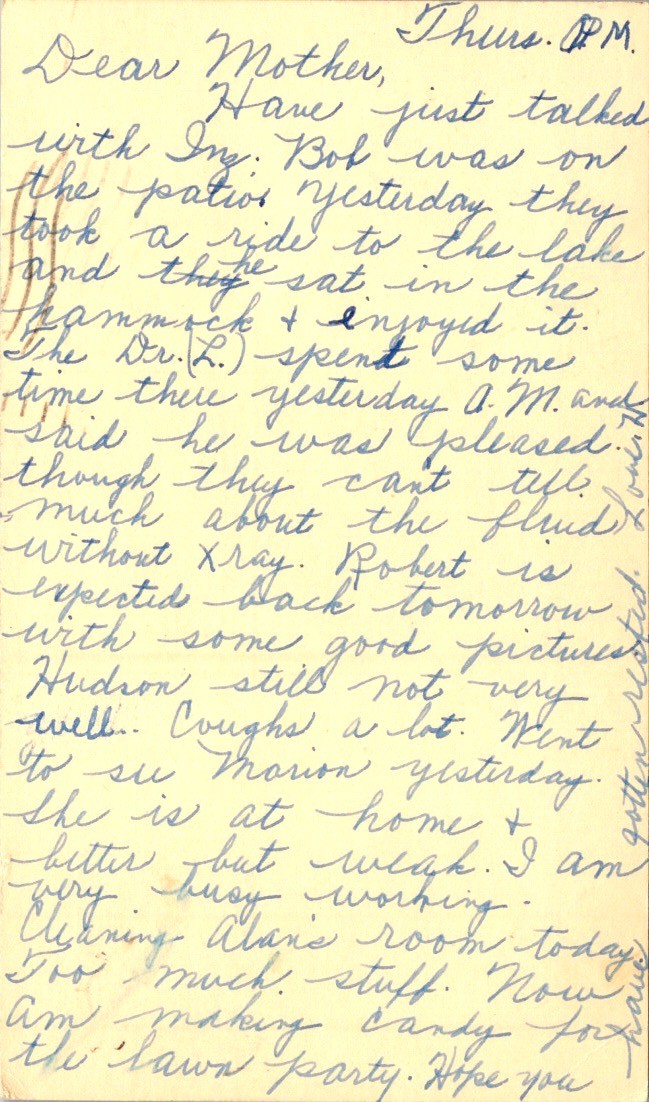 Thurs. P.M.
Dear Mother,
Have just talked
with Ing. Bob was on
the patio. Yesterday they
took a ride to the lake
and he sat in the
hammock & enjoyed it.
The Dr. (L.) spent some
time there yesterday A.M. and
said he was pleased.
though they can't tell
much about the fluid
without Xray. Robert is
expected back tomorrow
with some good pictures
Hudson still not very
well. Coughs a lot. Went
to see Marion yesterday.
She is at home &
better but weak. I am
very busy working.
Cleaning Alan's room today.
Too much stuff. Now
am making candy for
the lawn party. Hope you
have gotten rested. Love,